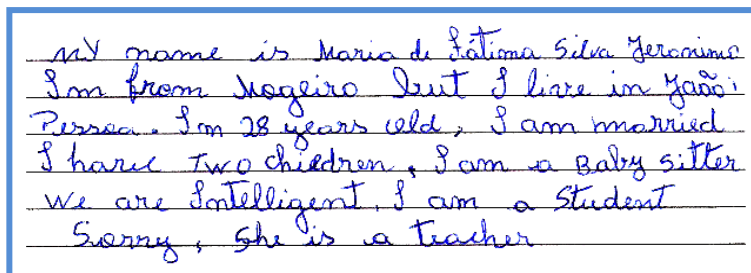 MY name is Maria de Fátima Silva Jeronimo
Im from Mogeiro but I live in João
Pessoa. Im 28 years old, I am married
I have Two children, I am a Baby sitter
We are Intelligent. I am a Student
Sorry, She is a teacher